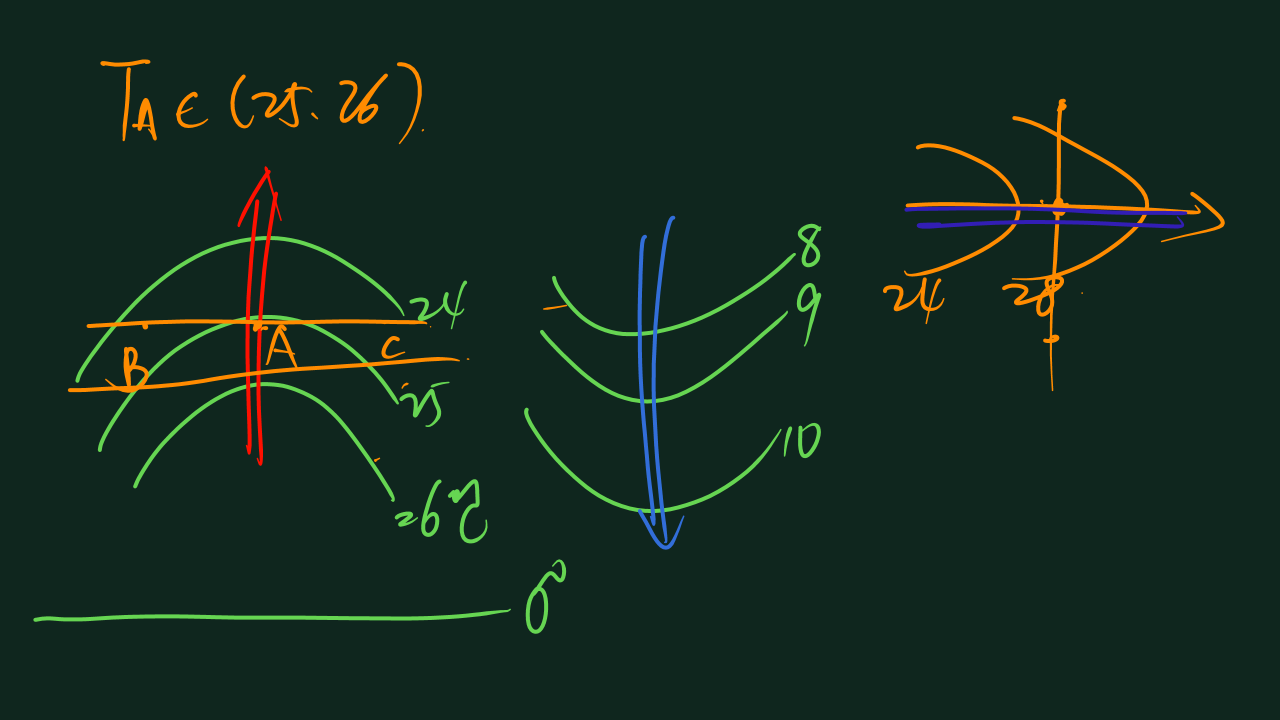 T_A ∈ (25.26)
24
A
B
C
25
26℃
0°
8
9
10
24
28